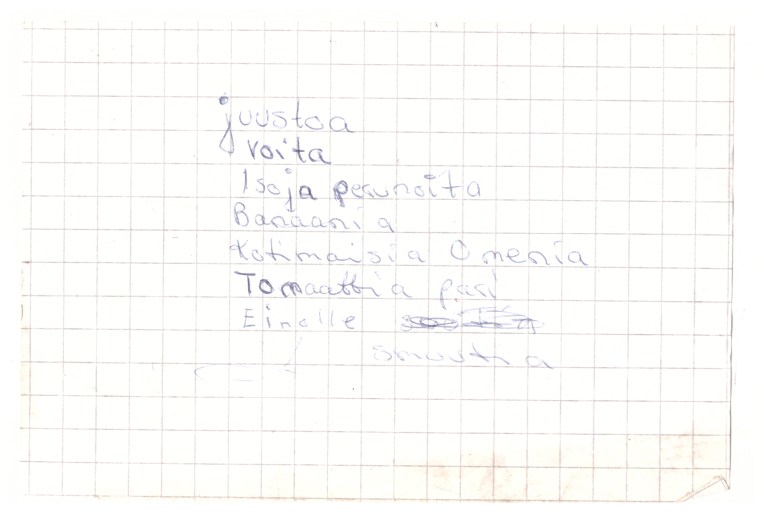 juustoa
voita
Isoja perunoita
Banaania
Kotimaisia Omenia
Tomaattia pari
Einolle
smuutia